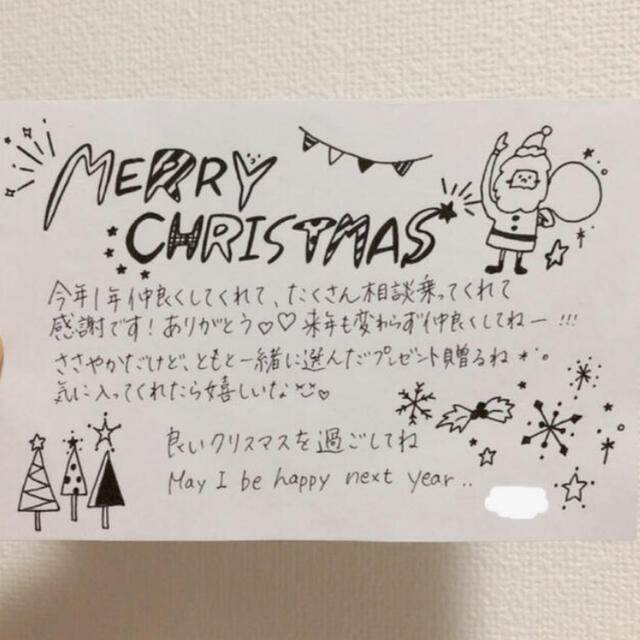 MERRY
CHRISTMAS
今年1年仲良くしてくれて、たくさん相談乗ってくれて
感謝です！ありがとう♡♡来年も変わらず仲良くしてねー!!!
ささやかだけど、ともと一緒に選んだプレゼント贈るね
気に入ってくれたら嬉しいな♡
良いクリスマスを過ごしてね
May I be happy next year..